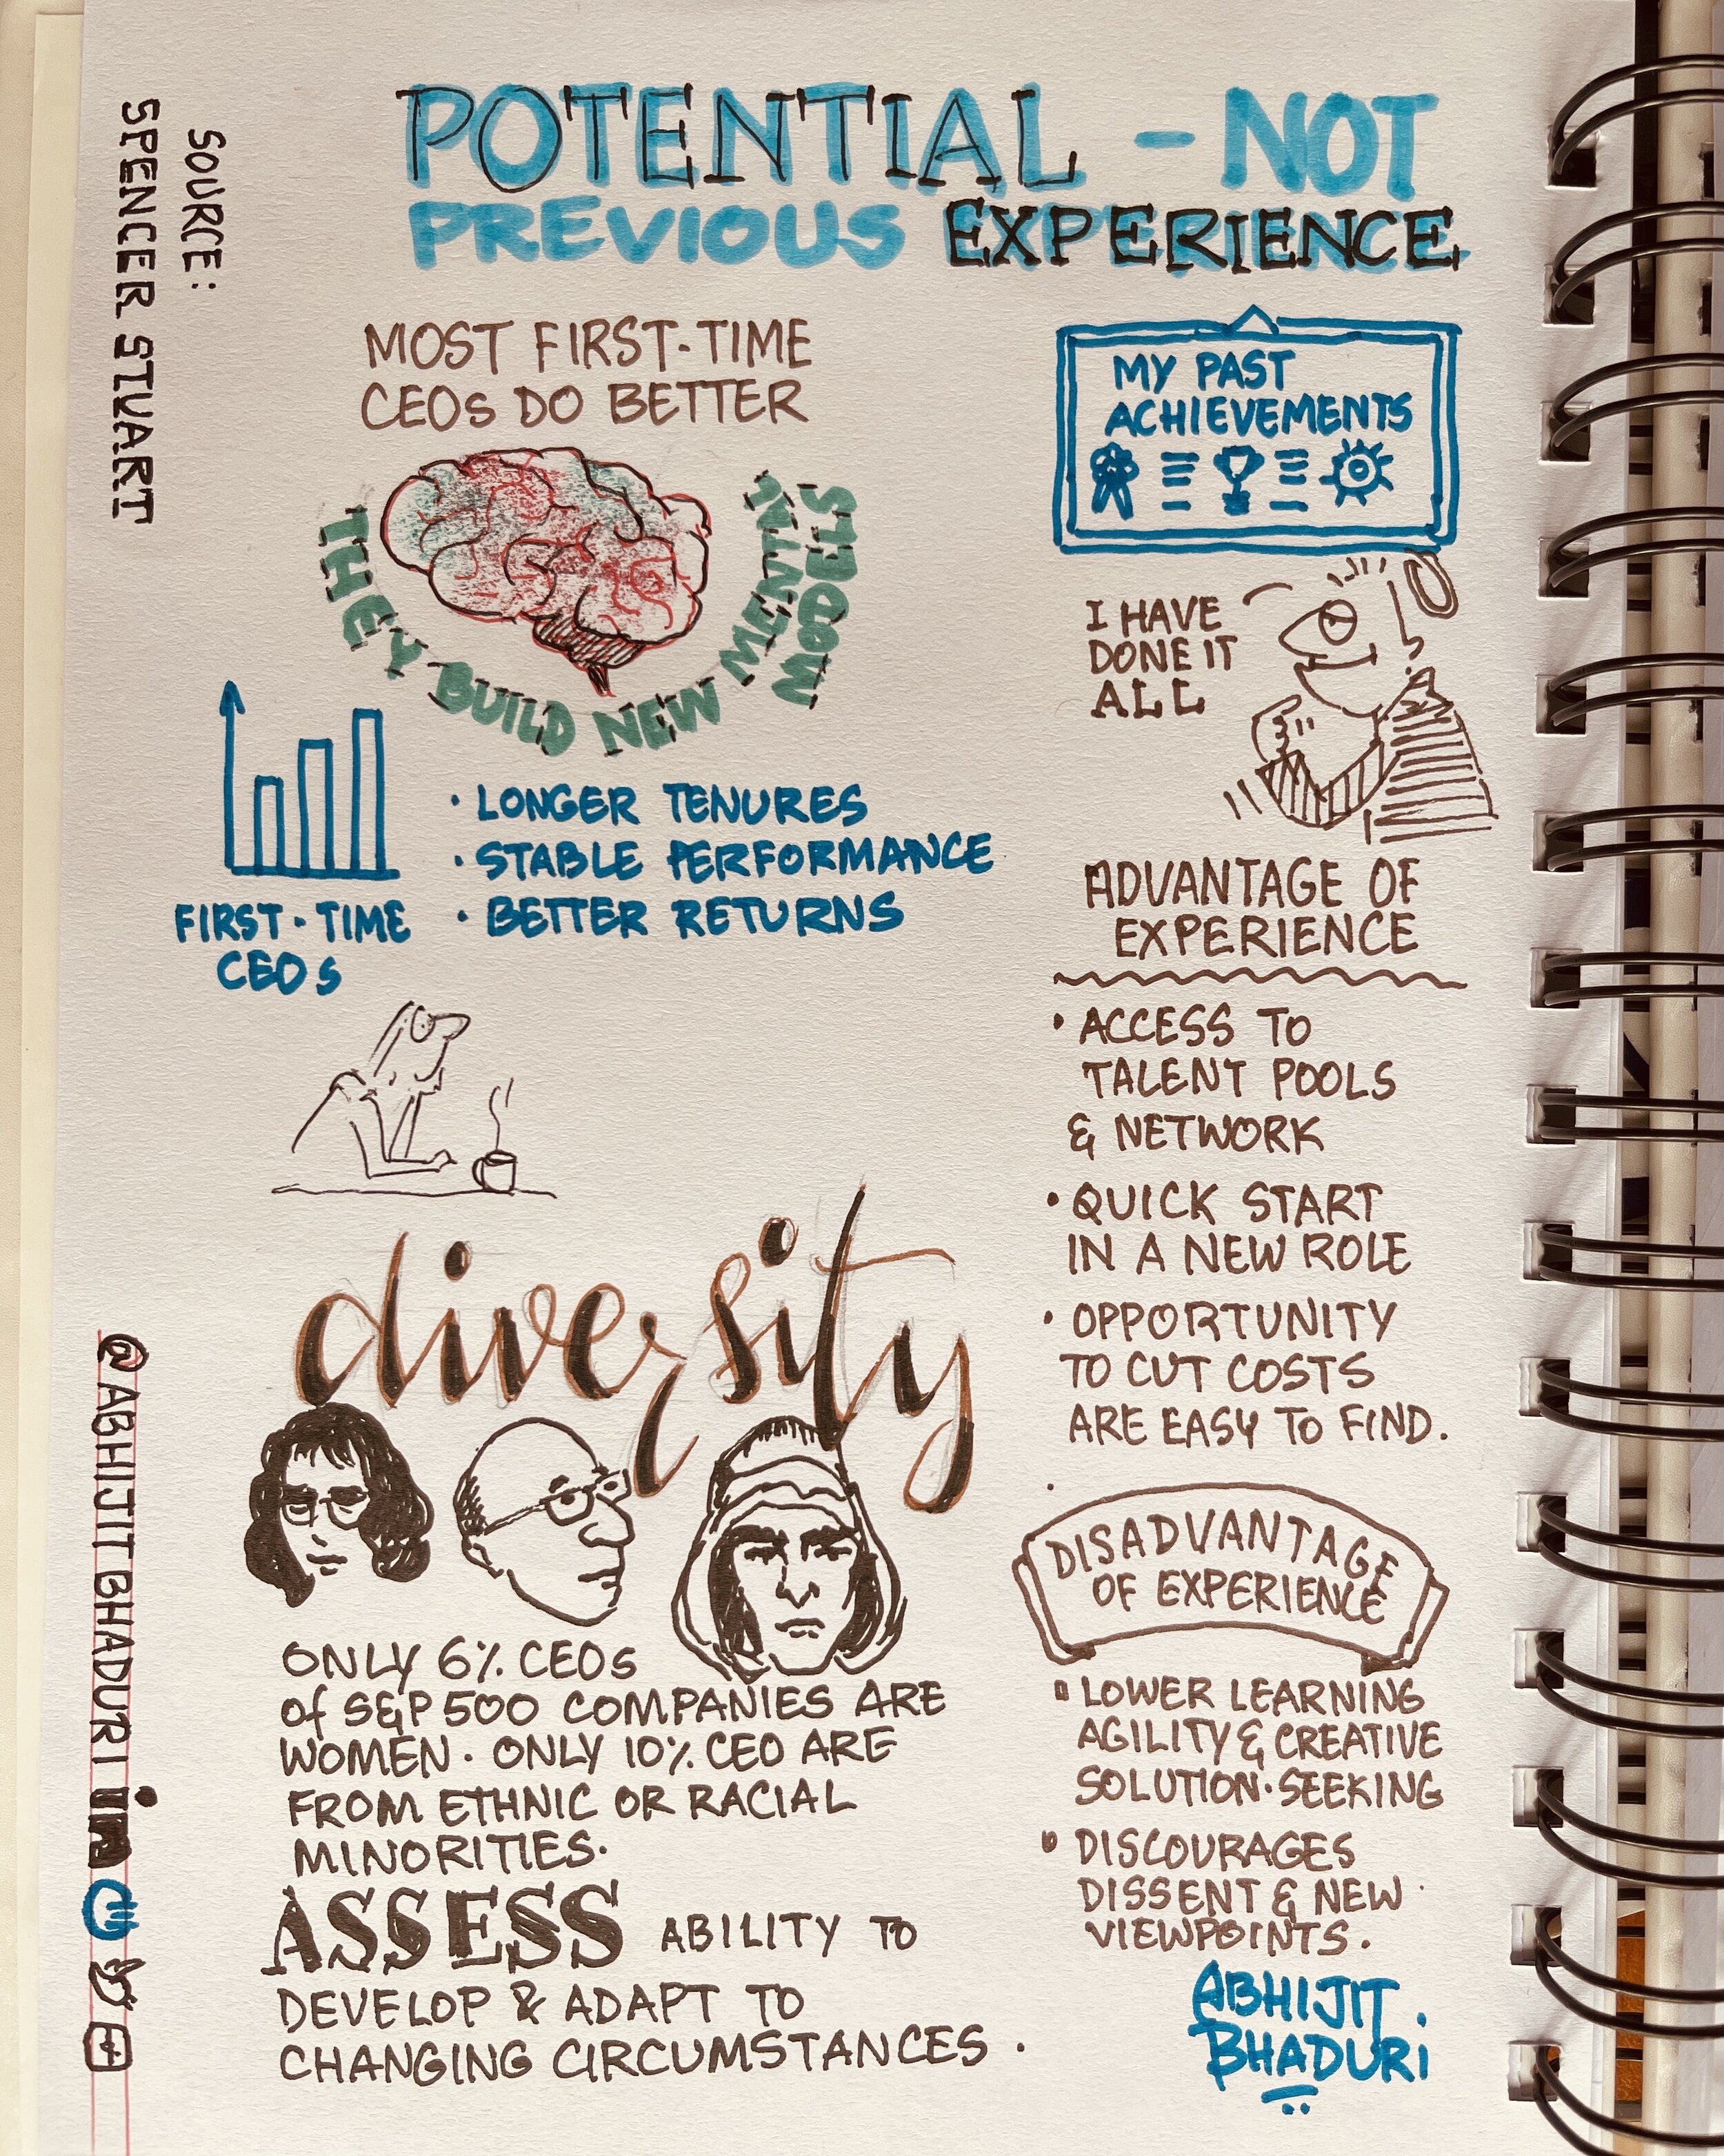 POTENTIAL - NOT
PREVIOUS EXPERIENCE
SOURCE:
SPENCER STUART
MOST FIRST-TIME
CEOs DO BETTER
THEY BUILD NEW MENTAL
MODELS
FIRST-TIME
CEOs
• LONGER TENURES
• STABLE PERFORMANCE
• BETTER RETURNS
MY PAST
ACHIEVEMENTS
I HAVE
DONE IT
ALL
ADVANTAGE OF
EXPERIENCE
• ACCESS TO
TALENT POOLS
& NETWORK
• QUICK START
IN A NEW ROLE
• OPPORTUNITY
TO CUT COSTS
ARE EASY TO FIND.
DISADVANTAGE
OF EXPERIENCE
• LOWER LEARNING
AGILITY & CREATIVE
SOLUTION-SEEKING
• DISCOURAGES
DISSENT & NEW
VIEWPOINTS.
diversity
ONLY 6% CEOs
of S&P 500 COMPANIES ARE
WOMEN. ONLY 10% CEO ARE
FROM ETHNIC OR RACIAL
MINORITIES.
ASSESS ABILITY TO
DEVELOP & ADAPT TO
CHANGING CIRCUMSTANCES.
@ABHIJITBHADURI in
ABHIJIT.
BHADURI